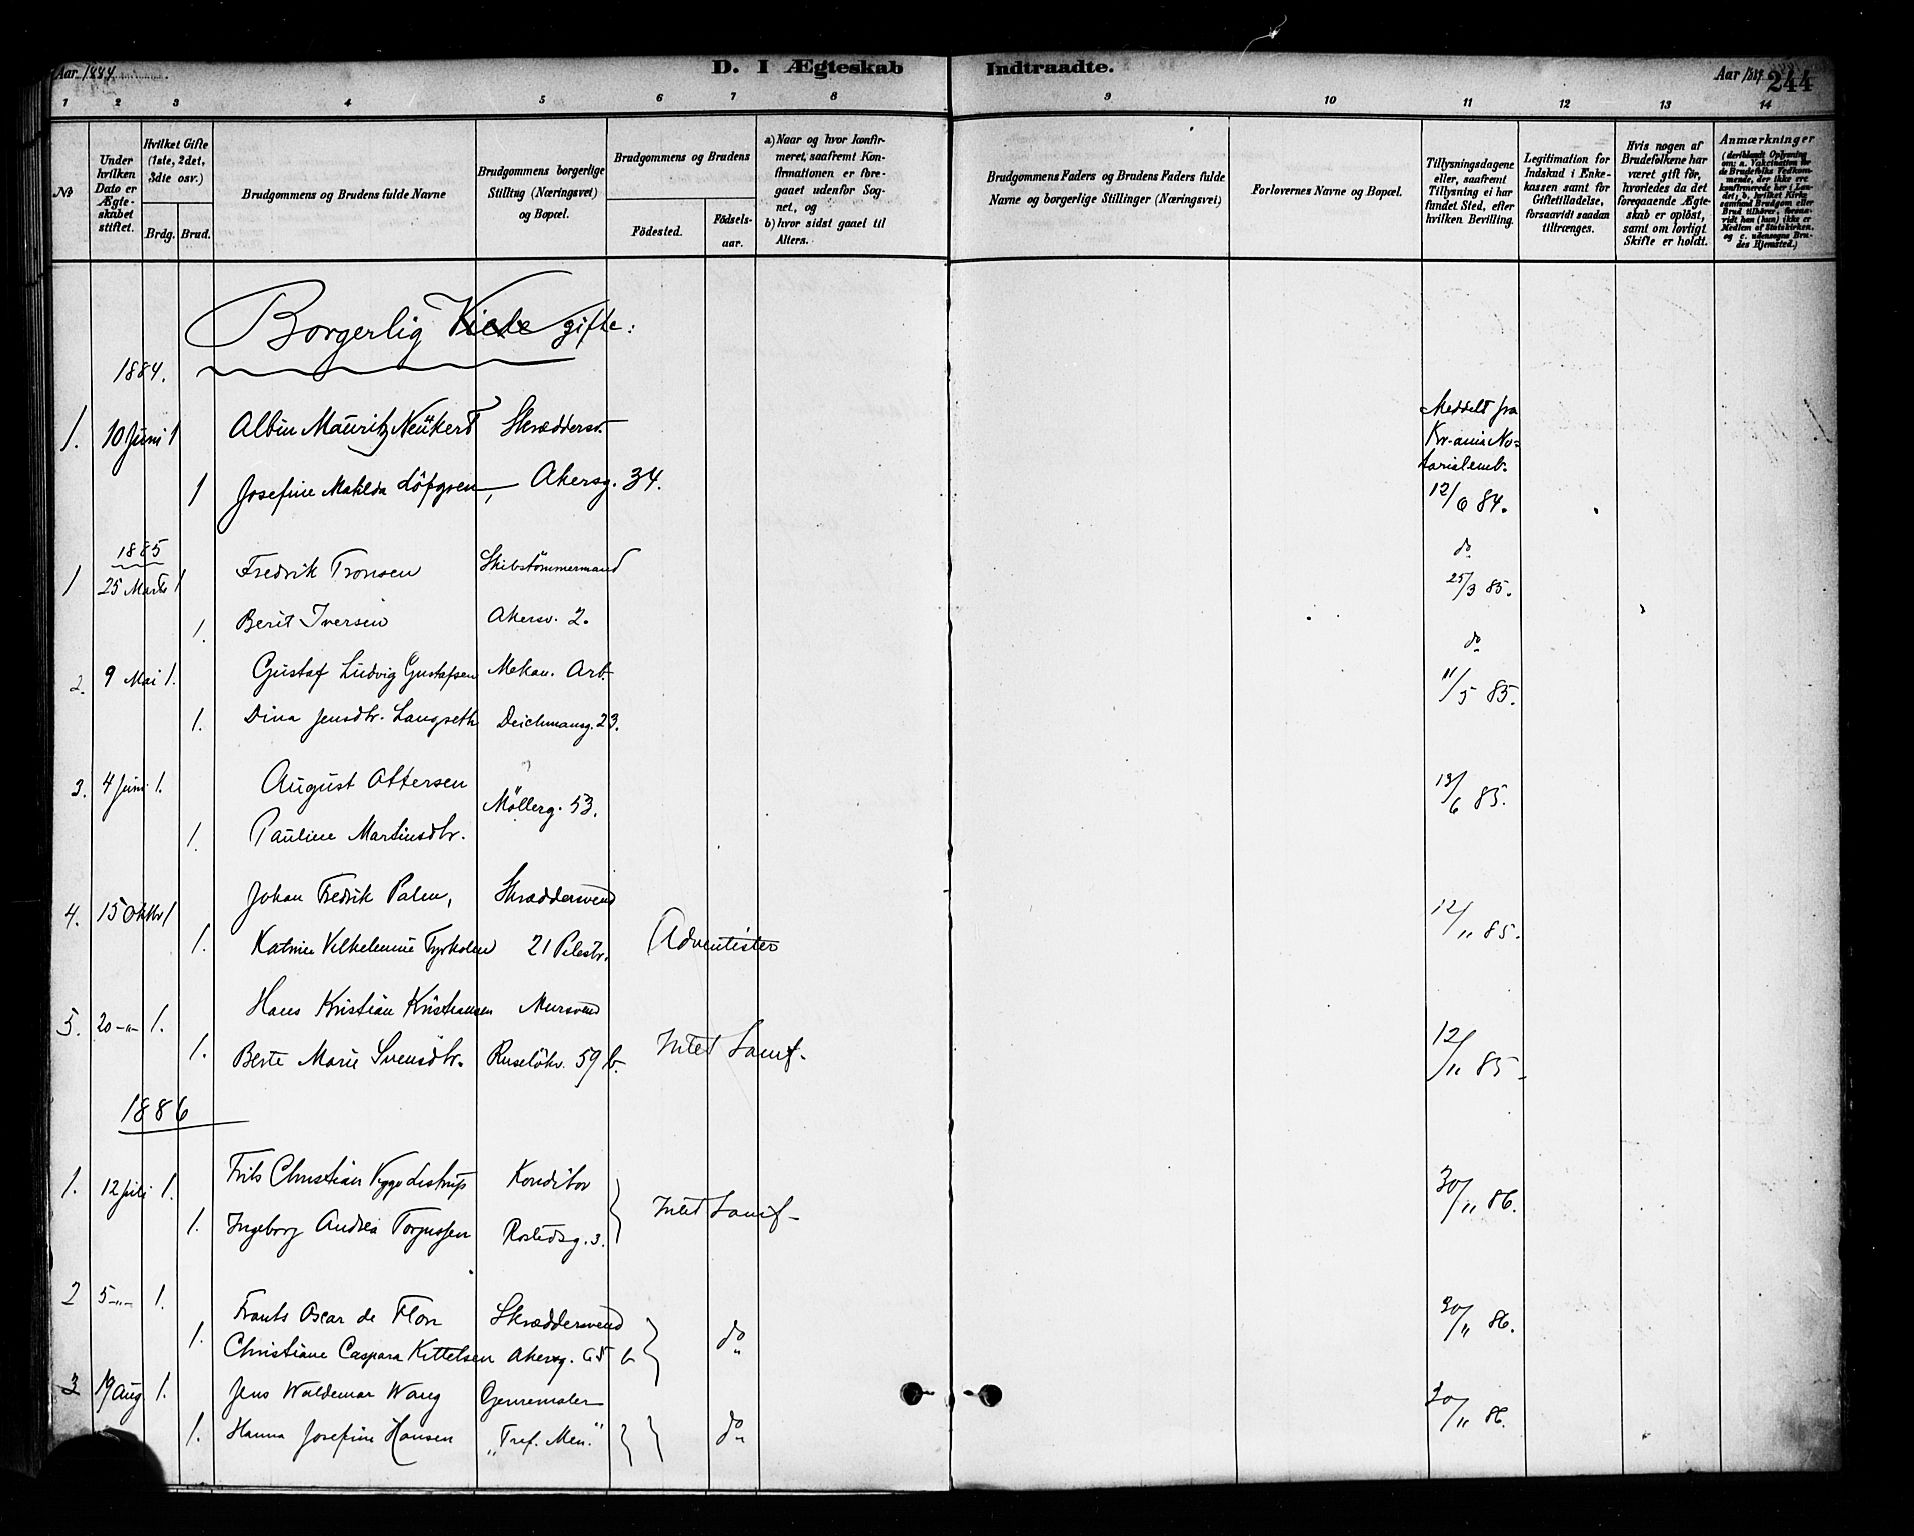 Aar 1884 D. I Ægteskab Indtraadte. Aar 244
1 2 3 4 5 6 7 8 9 10 11 12 13 14
No
Under hvilken Dato er Ægteskabet stiftet.
Hvilket Gifte (1ste, 2det, 3die osv.)
Brdg. Brud.
Brudgommens og Brudens fulde Navne
Brudgommens borgerlige Stilling (Næringsvei) og Bopæl.
Brudgommens og Brudens
Fødested.
Fødsels-aar.
a) Naar og hvor konfir-
meret, saafremt Kon-
firmationen er fore-
gaaet udenfor Sog-
net, og
b) hvor sidst gaaet til
Alters.
Brudgommens Faders og Brudens Faders fulde
Navne og borgerlige Stillinger (Næringsvei)
Forlovernes Navne og Bopæl.
Tillysningsdagene
eller, saafremt
Tillysning ei har
fundet Sted, efter
hvilken Bevilling.
Legitimation for
Indskud i Enke-
kassen samt for
Giftetilladelse,
forsaavidt saadan
tiltrænges.
Hvis nogen af
Brudefolkene har
været gift før,
hvorledes da det
foregaaende Ægte-
skab er opløst,
samt om lovligt
Skifte er holdt.
Anmærkninger
(deriblandt Oplysning
om: a. Vakcination for
de Brudefolks Vedkom-
mende, der ikke ere
konfirmerede her i Lan-
det, b. hvilket Kirke-
samfund Brudgom eller
Brud tilhører, forsaa-
vidt han (hun) ikke er
Medlem af Statskirken,
og c. udensogns Bru-
des Hjemsted.)
Borgerlig gifte:
1884.
1. 10 Juni 1 Albin Mauritz Neükert Skræddersv. Meddelt fra Kr-ania No-
tarialemb.
1 Josefine Matilda Löfgren, Akersg. 34. 12/6 84.
1885
1 25 Marts 1 Fredrik Tronsen Skibstömmermand do 25/3 85.
1. Berit Iversen Akersv. 2.
2. 9 Mai 1. Gustaf Ludvig Gustafsen Mekan. Arb. do 11/5 85.
1. Dina Jensdtr. Langseth Deichmansg. 23.
3. 4 Juni 1. August Ottersen Möllerg. 53. 13/6 85.
1. Pauline Martinsdtr.
4. 15 Oktbr 1 Johan Fredrik Palen, Skræddersvend 12/11 85.
1. Katrine Vilhelmine 21 Pilestr. Adventister
5. 20 -"- 1. Hans Kristian Kristiansen Mursvend 12/11 85
1. Berte Marie Svensdtr. Ruselökv. 59 b. Intet Samf.
1886
1. 12 Juli 1. Frits Christian Viggo Listrup Konditor Intet Samf. 30/11 86.
1. Ingeborg Andrea Torgussen Rostedsg. 3.
2 5 -"- 1. Frants Oscar de Flon Skræddersvend do 30/11 86.
1. Christiane Caspara Kittelsen Akersg. 65 b
3 19 Aug 1. Jens Waldemar Wang Genremaler 30/11 86.
1. Hanna Josefine Hansen "Tref. Men." do